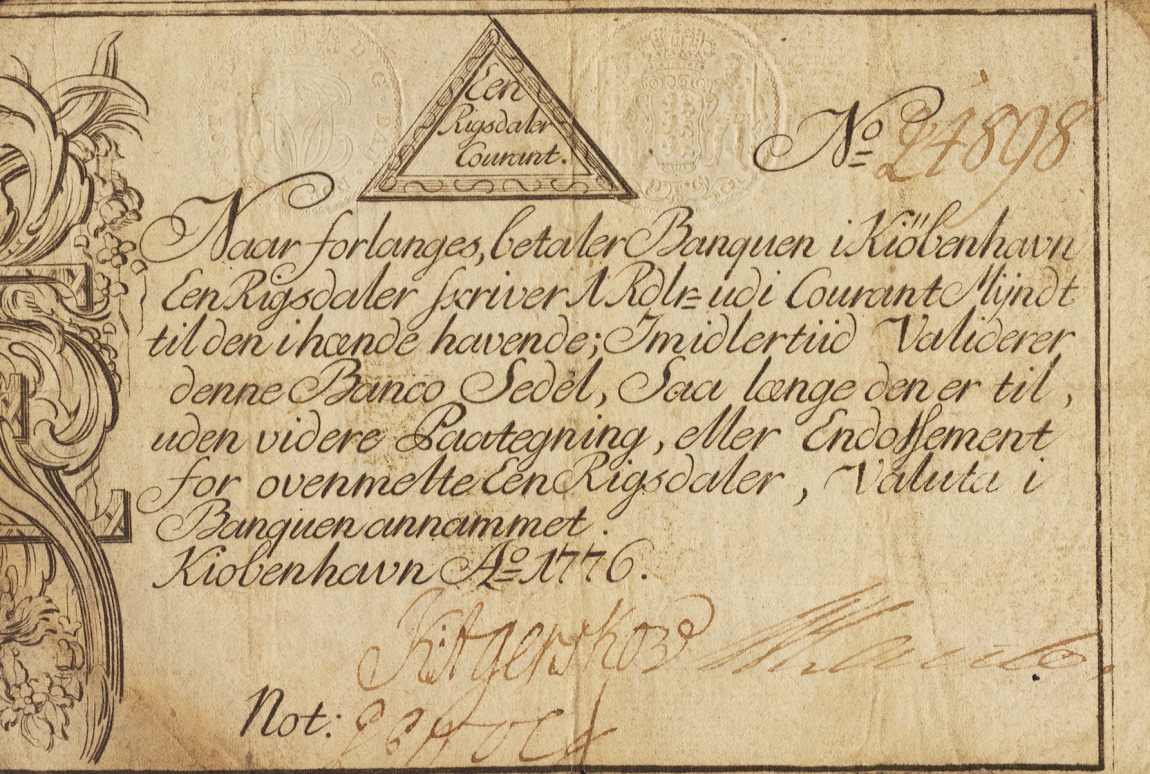 Een
Rigsdaler
Courant.
No 24898
Naar forlanges, betaler Banquen i Kiöbenhavn
Een Rigsdaler skriver 1 Rdlr= udi Courant Myndt
til den ihænde havende; Imidlertiid Validerer
denne Banco Sedel, Saa længe den er til,
uden videre Paategning, eller Endossement
for ovenmelte Een Rigsdaler, Valuta i
Banquen annammet.
Kiobenhavn Ao 1776.
Not: